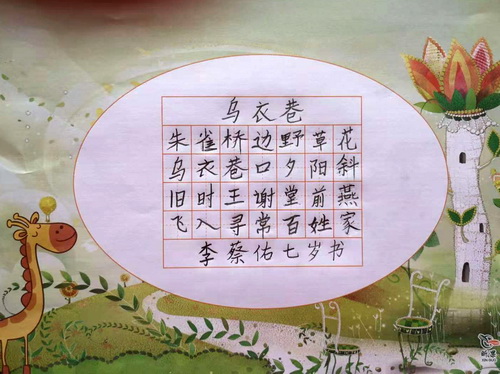 乌衣巷
朱雀桥边野草花
乌衣巷口夕阳斜
旧时王谢堂前燕
飞入寻常百姓家
李蔡佑七岁书